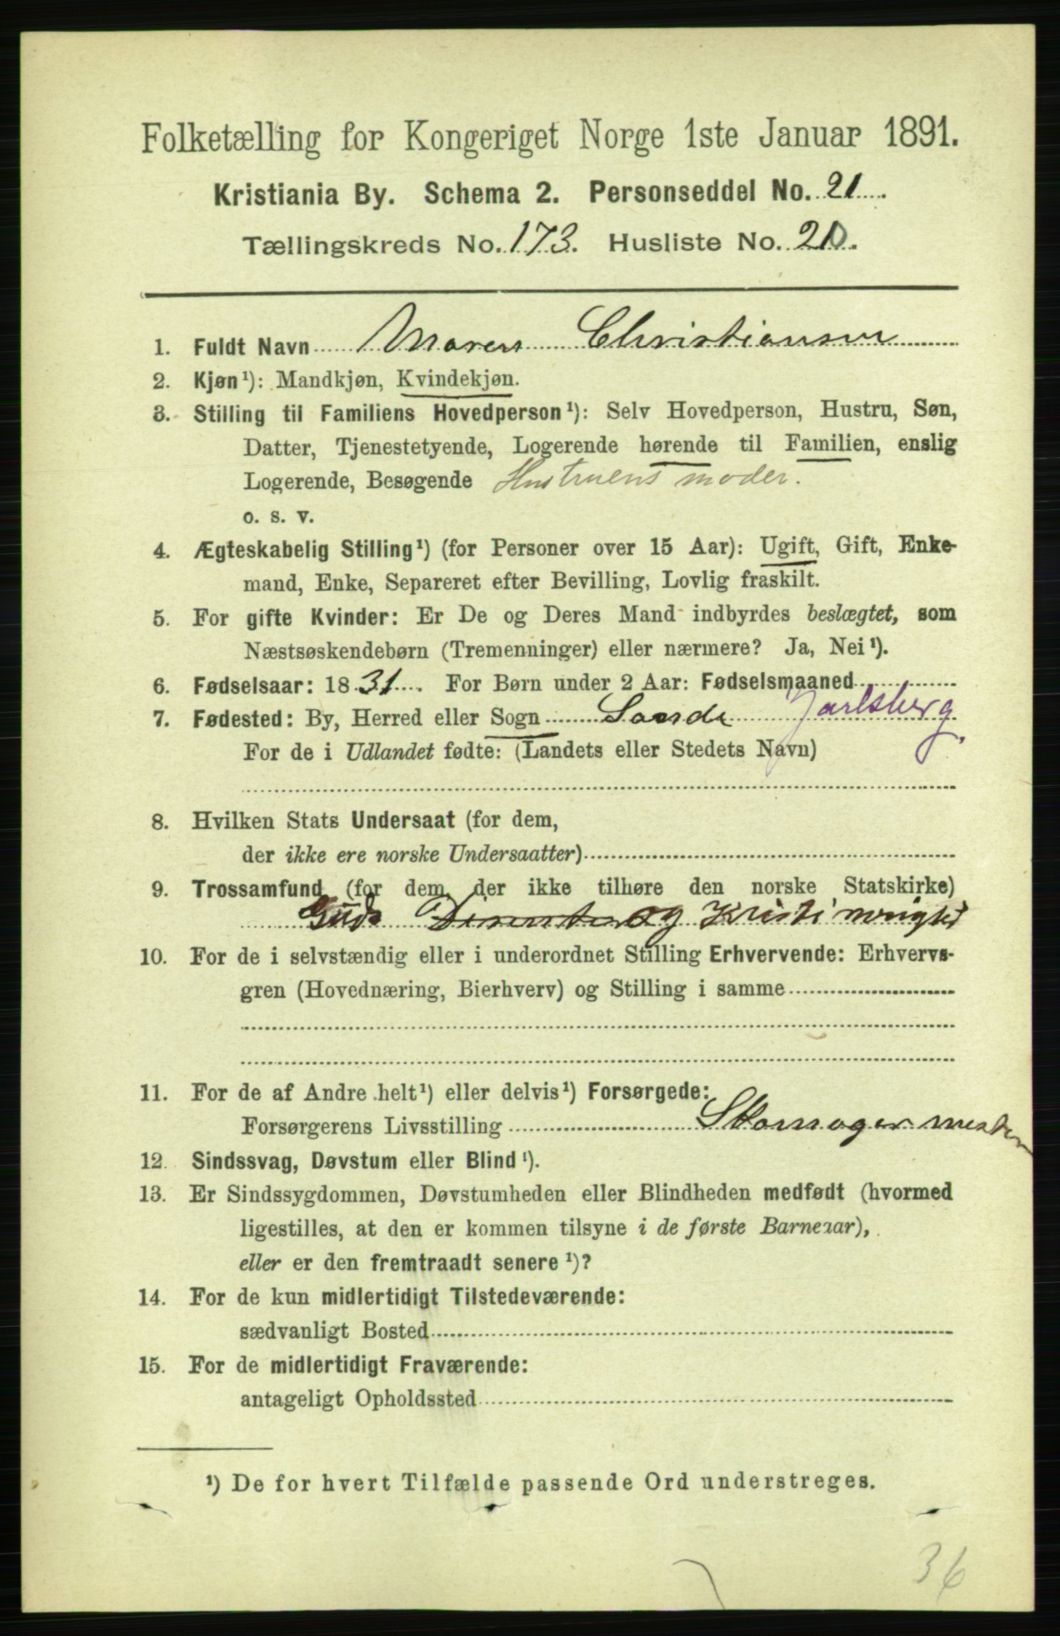 Folketælling for Kongeriget Norge 1ste Januar 1891.
Kristiania By. Schema 2. Personseddel No. 21.
Tællingskreds No. 173. Husliste No. 20.
1. Fuldt Navn Maren Christiansen
2. Kjøn¹): Mandkjøn, Kvindekjøn.
3. Stilling til Familiens Hovedperson¹): Selv Hovedperson, Hustru, Søn,
Datter, Tjenestetyende, Logerende hørende til Familien, enslig
Logerende, Besøgende Hustruens moder.
o. s. v.
4. Ægteskabelig Stilling¹) (for Personer over 15 Aar): Ugift, Gift, Enke-
mand, Enke, Separeret efter Bevilling, Lovlig fraskilt.
5. For gifte Kvinder: Er De og Deres Mand indbyrdes beslægtet, som
Næstsøskendebørn (Tremenninger) eller nærmere? Ja, Nei¹).
6. Fødselsaar: 1831. For Børn under 2 Aar: Fødselsmaaned
7. Fødested: By, Herred eller Sogn Sande Jarlsberg.
For de i Udlandet fødte: (Landets eller Stedets Navn)
8. Hvilken Stats Undersaat (for dem,
der ikke ere norske Undersaatter)
9. Trossamfund (for dem, der ikke tilhøre den norske Statskirke)
Guds Dissenter og Kristi menighed
10. For de i selvstændig eller i underordnet Stilling Erhvervende: Erhvervs-
gren (Hovednæring, Bierhverv) og Stilling i samme
11. For de af Andre helt¹) eller delvis¹) Forsørgede:
Forsørgerens Livsstilling Skomagermester
12. Sindssvag, Døvstum eller Blind¹).
13. Er Sindssygdommen, Døvstumheden eller Blindheden medfødt (hvormed
ligestilles, at den er kommen tilsyne i de første Barneaar),
eller er den fremtraadt senere¹)?
14. For de kun midlertidigt Tilstedeværende:
sædvanligt Bosted
15. For de midlertidigt Fraværende:
antageligt Opholdssted
¹) De for hvert Tilfælde passende Ord understreges.
36